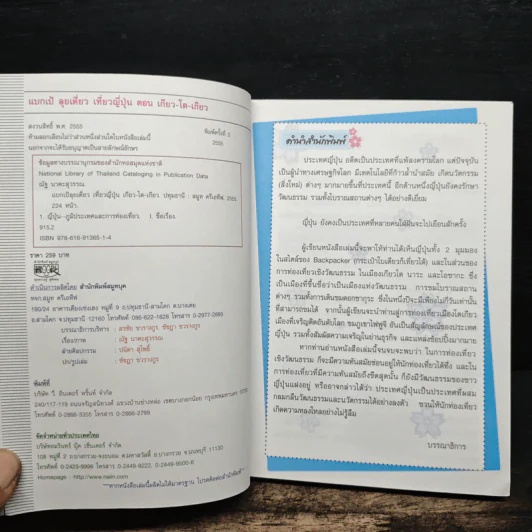 แบกเป้ ลุยเดี่ยว เที่ยวญี่ปุ่น ตอน เกียว-โต-เกียว
สงวนสิทธิ์ พ.ศ. 2555
พิมพ์ครั้งที่ 2
ห้ามลอกเลียนไม่ว่าส่วนหนึ่งส่วนใดในหนังสือเล่มนี้
2555
นอกจากจะได้รับอนุญาตเป็นลายลักษณ์อักษร
ข้อมูลทางบรรณานุกรมของสำนักหอสมุดแห่งชาติ
National Library of Thailand Cataloging in Publication Data
ณัฐ นาคะสุวรรณ
แบกเป้ลุยเดี่ยว เที่ยวญี่ปุ่น เกียว-โต-เกียว. ปทุมธานี : สมุท ครีเอทีฟ, 2555.
224 หน้า.
1. ญี่ปุ่น--ภูมิประเทศและการท่องเที่ยว. I. ชื่อเรื่อง.
915.2
ISBN 978-616-91365-1-4
ราคา 259 บาท
ดำเนินการผลิตโดย สำนักพิมพ์สมุทบุค
หจก.สมุท ครีเอทีฟ
บรรณาธิการบริหาร :
เรื่อง/ภาพ : ณัฐ นาคะสุวรรณ
ฝ่ายศิลปกรรม :
ปก/รูปเล่ม :
พิมพ์ที่
บริษัท วี. พริ้นท์ จำกัด
โทรศัพท์ 0-2866-3355 โทรสาร 0-2866-2799.
จัดจำหน่ายทั่วประเทศโดย
บริษัทอมรินทร์ บุ๊ค เซ็นเตอร์ จำกัด
108 หมู่ที่ 2 ถ.บางกรวย-จงถนอม ต.มหาสวัสดิ์ อ.บางกรวย จ.นนทบุรี 11130
โทรศัพท์ 0-2423-9999 โทรสาร 0-2449-9222, 0-2449-9500-6
Homepage : http://www.naiin.com
**หากหนังสือเล่มนี้ผลิตไม่ได้มาตรฐาน โปรดติดต่อสำนักพิมพ์**
คำนำสำนักพิมพ์
ประเทศญี่ปุ่น อดีตเป็นประเทศที่แพ้สงครามโลก แต่ปัจจุบัน
เป็นผู้นำทางเศรษฐกิจโลก มีเทคโนโลยีที่ก้าวล้ำนำสมัย เกิดนวัตกรรม
(สิ่งใหม่) ต่างๆ มากมายขึ้นที่ประเทศนี้ อีกด้านหนึ่งญี่ปุ่นยังคงรักษา
วัฒนธรรม รวมทั้งโบราณสถานต่างๆ ได้อย่างดีเยี่ยม
ญี่ปุ่น ยังคงเป็นประเทศที่หลายคนใฝ่ฝันจะไปเยือนสักครั้ง
ผู้เขียนหนังสือเล่มนี้จะพาให้ท่านได้เห็นญี่ปุ่นทั้ง 2 มุมมอง
ในสไตล์ของ Backpacker (กระเป๋าใบเดียวก็เที่ยวได้) และในส่วนของ
การท่องเที่ยวเชิงวัฒนธรรม ในเมืองเกียวโต นาระ และโอซากะ ซึ่ง
เป็นเมืองที่ขึ้นชื่อว่าเป็นเมืองแห่งวัฒนธรรม การชมโบราณสถาน
ต่างๆ รวมทั้งการเดินชมดอกซากุระ ซึ่งในหนึ่งปีจะมีเพียงไม่กี่วันเท่านั้น
ที่สามารถชมได้ จากนั้นผู้เขียนจะนำท่านสู่การท่องเที่ยวเมืองโตเกียว
เมืองที่เจริญติดอันดับโลก ชมภูเขาไฟฟูจี อันเป็นสัญลักษณ์ของประเทศ
ญี่ปุ่น รวมทั้งสัมผัสความเจริญในย่านธุรกิจ และแหล่งช้อปปิ้งมากมาย
หากท่านอ่านหนังสือเล่มนี้จนจบจะพบว่า ในการท่องเที่ยว
เชิงวัฒนธรรม ก็จะมีความทันสมัยซ่อนอยู่ให้นักท่องเที่ยวได้ทึ่ง และใน
การท่องเที่ยวที่มีความทันสมัยถึงขีดสุดนั้น ก็ยังมีวัฒนธรรมของชาว
ญี่ปุ่นแฝงอยู่ หรืออาจกล่าวได้ว่า ประเทศญี่ปุ่นเป็นประเทศที่ผสม
กลมกลืนวัฒนธรรมและนวัตกรรมได้อย่างลงตัว ชวนให้นักท่องเที่ยว
เกิดความหลงใหลอย่างไม่รู้ลืม
บรรณาธิการ